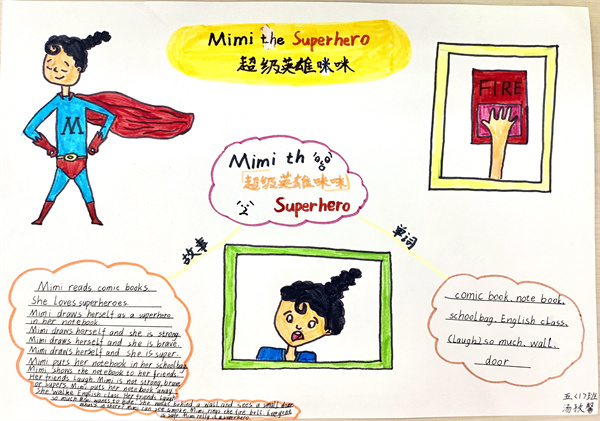 Mimi the Superhero
超级英雄咪咪
M
FIRE
Mimi th
超级英雄咪咪
Superhero
故事
单词
Mimi reads comic books
She loves superheroes
Mimi draws herself as a superhero
in her notebook.
Mimi draws herself and she is strong.
Mimi draws herself and she is brave.
Mimi draws herself and she is super.
Mimi puts her notebook in her schoolbag
Mimi shows the notebook to her friends.
Her friends laugh. Mimi is not strong, brave
or supers. Mimi puts her notebook away
She walks English class. Her friends laugh
so much. She wants to hide. She walks behind a wall and sees a small door
there! Mimi can see smoke. Mimi rings the fire bell. Everyone
is safe. Mimi really is a superhero.
comic book. note book.
schoolbag. English class.
(laugh) so much. wall.
door
五(1)班